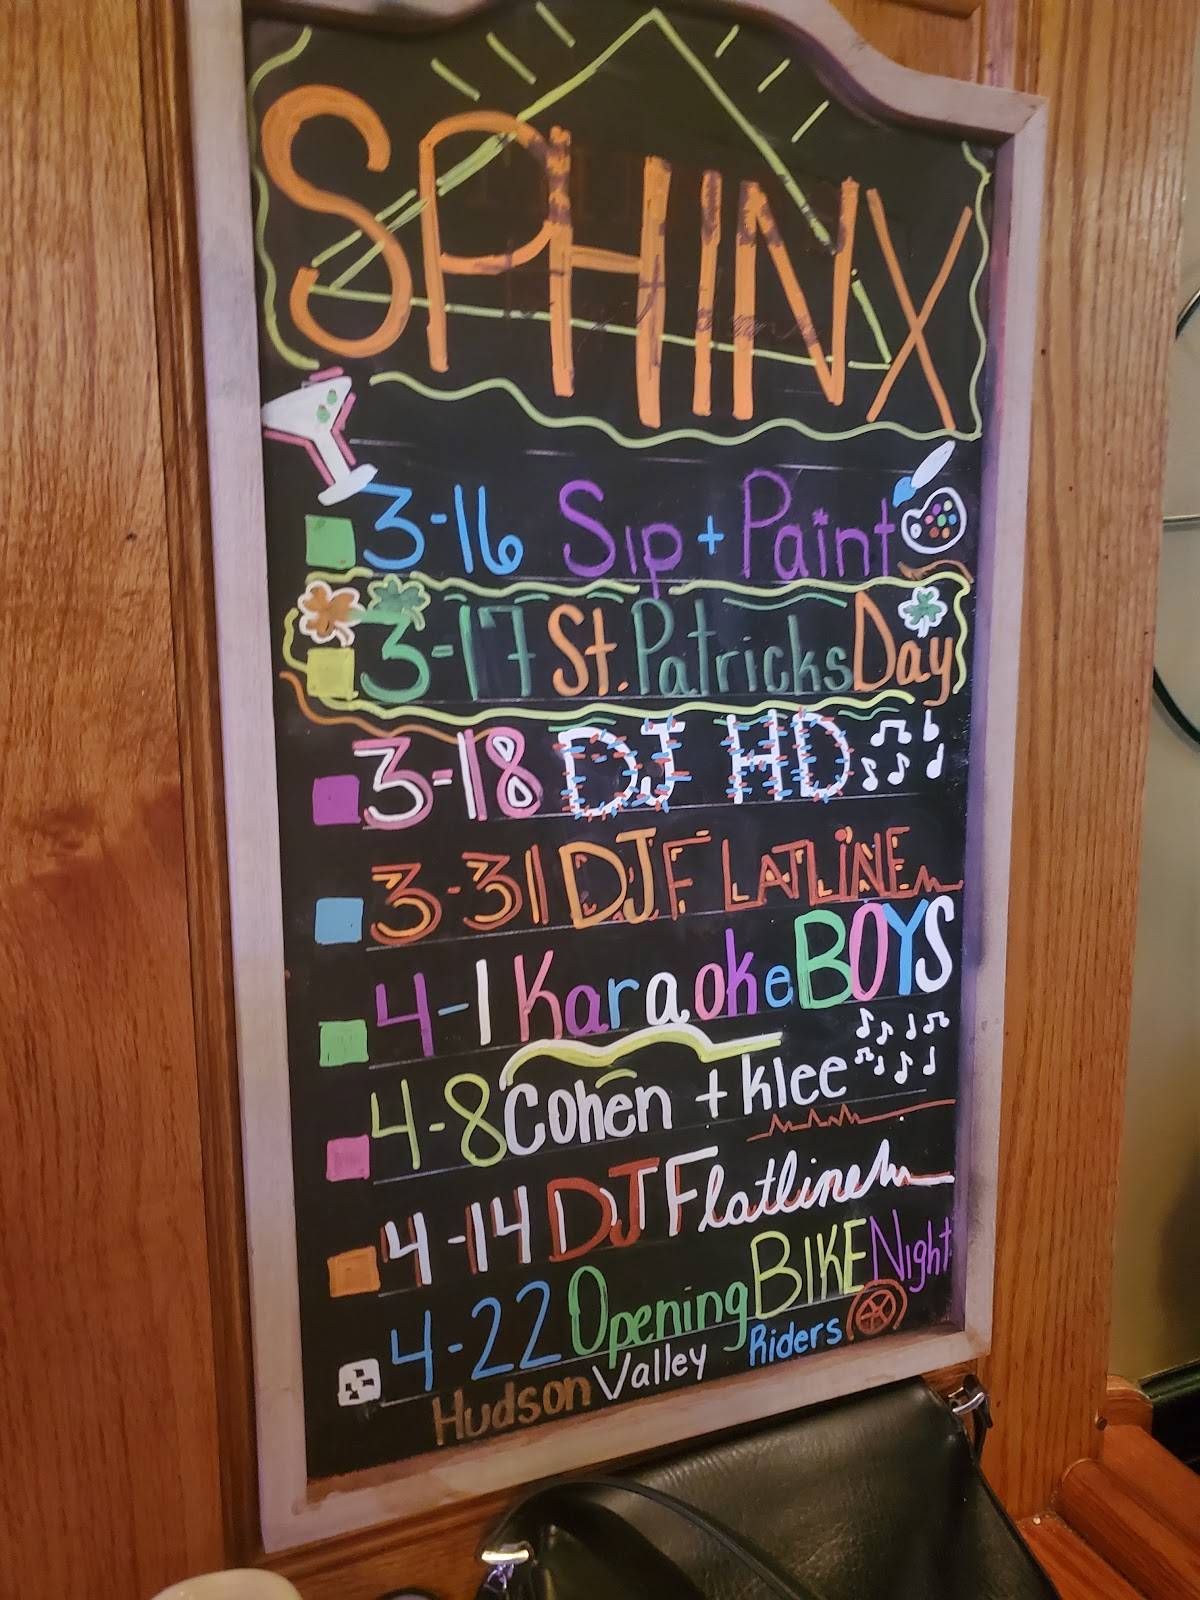 SPHINX
3-16 Sip + Paint
3-17 St. Patricks Day
3-18 DJ HD
3-31 DJ FLATLiNE
4-1 Karaoke BOYS
4-8 Cohen + klee
4-14 DJ Flatline
4-22 Opening BIKE Night
Hudson Valley Riders